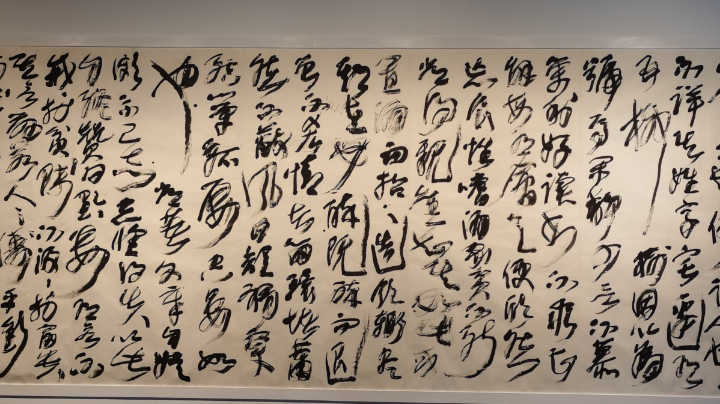 不詳其姓字宅邊有
五柳樹因以為
號焉閑靜少言不慕
榮利好讀書不求甚
解每有會意便欣然
忘食性嗜酒家貧不能
常得親舊知其如此或
置酒而招之造飲輒盡
期在必醉既醉而退
曾不吝情去留環堵蕭
然不蔽風日短褐穿
結簞瓢屢空晏如
也常著文章自娛
頗示己志忘懷得失以此
自終贊曰黔婁有言不
戚戚於貧賤不汲汲於富貴
其言茲若人之儔乎銜